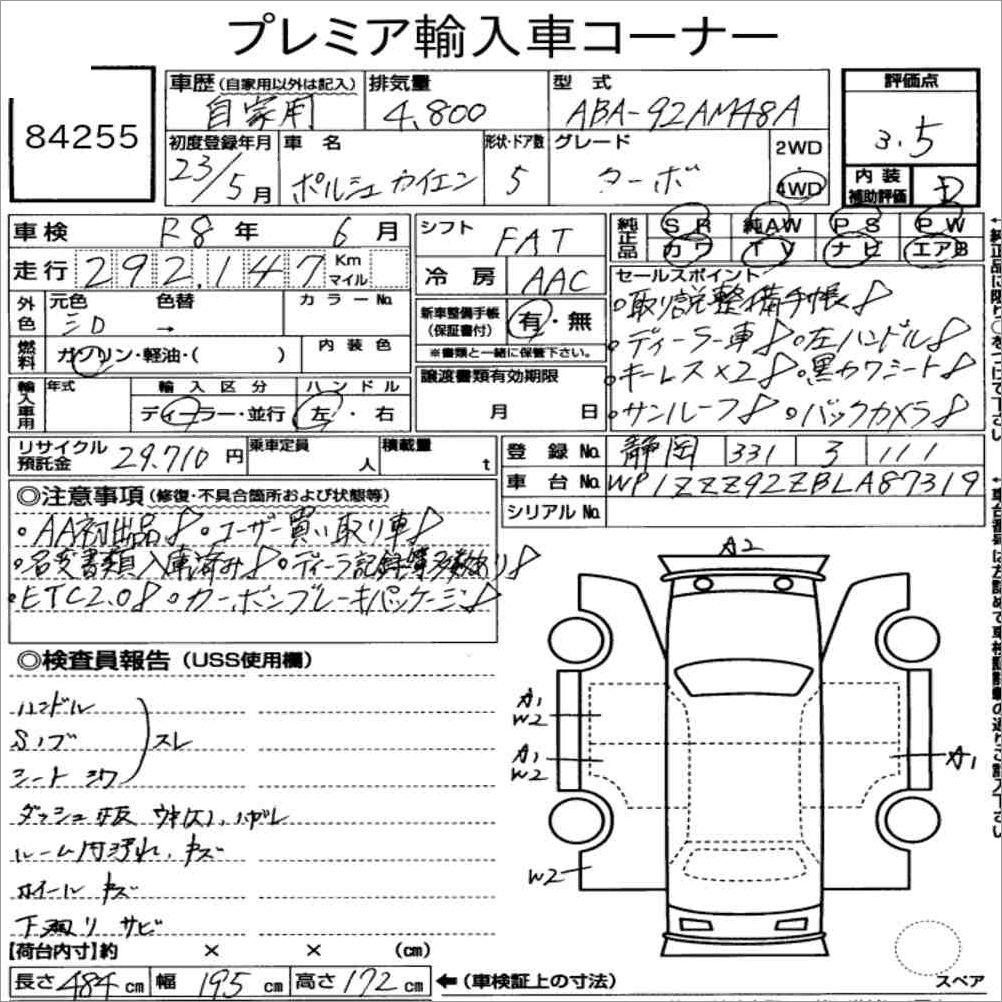 プレミア輸入車コーナー
84255
車歴 (自家用以外は記入) 自家用
排気量 4,800
型式 ABA-92AM48A
評価点 3.5
初度登録年月 23/5月
車名 ポルシェ カイエン
形状・ドア数 5
グレード ターボ
2WD・4WD
内装補助評価 D
車検 R8年 6月
シフト FAT
純正品 SR 純AW PS PW
カワ TV ナビ エアB
走行 292,147 Km マイル
冷房 AAC
セールスポイント
○取り説整備手帳
○ディーラー車 ○左ハンドル
○キーレス×2 ○黒カワシート
○サンルーフ ○バックカメラ
外色 元色 色替 カラーNo
三D →
新車整備手帳(保証書付) 有・無
※書類と一緒に保管下さい。
燃料 ガソリン・軽油・( ) 内装色
譲渡書類有効期限 月 日
輸入車用 年式 輸入区分 ハンドル
ディーラー・並行 左・右
リサイクル預託金 29,710円
乗車定員 人
積載量 t
登録No 静岡 331 3 111
車台No WP1ZZZ92ZBLA87319
シリアルNo
◎注意事項(修復・不具合箇所および状態等)
○AA初出品 ○ユーザー買い取り車
○名変書類入庫済み ○ディーラ記録簿多数あり
○ETC2.0 ○カーボンブレーキパッケージ
◎検査員報告(USS使用欄)
ハンドル
Sノブ スレ
シート シワ
ダッシュ板 ハガレ
ルーム内汚れ、キズ
ホイール キズ
下廻り サビ
A2
A1
W2
A1
W2
A1
W2
【荷台内寸】約 × × (cm)
長さ 484cm 幅 195cm 高さ 172cm ←(車検証上の寸法)
スペア